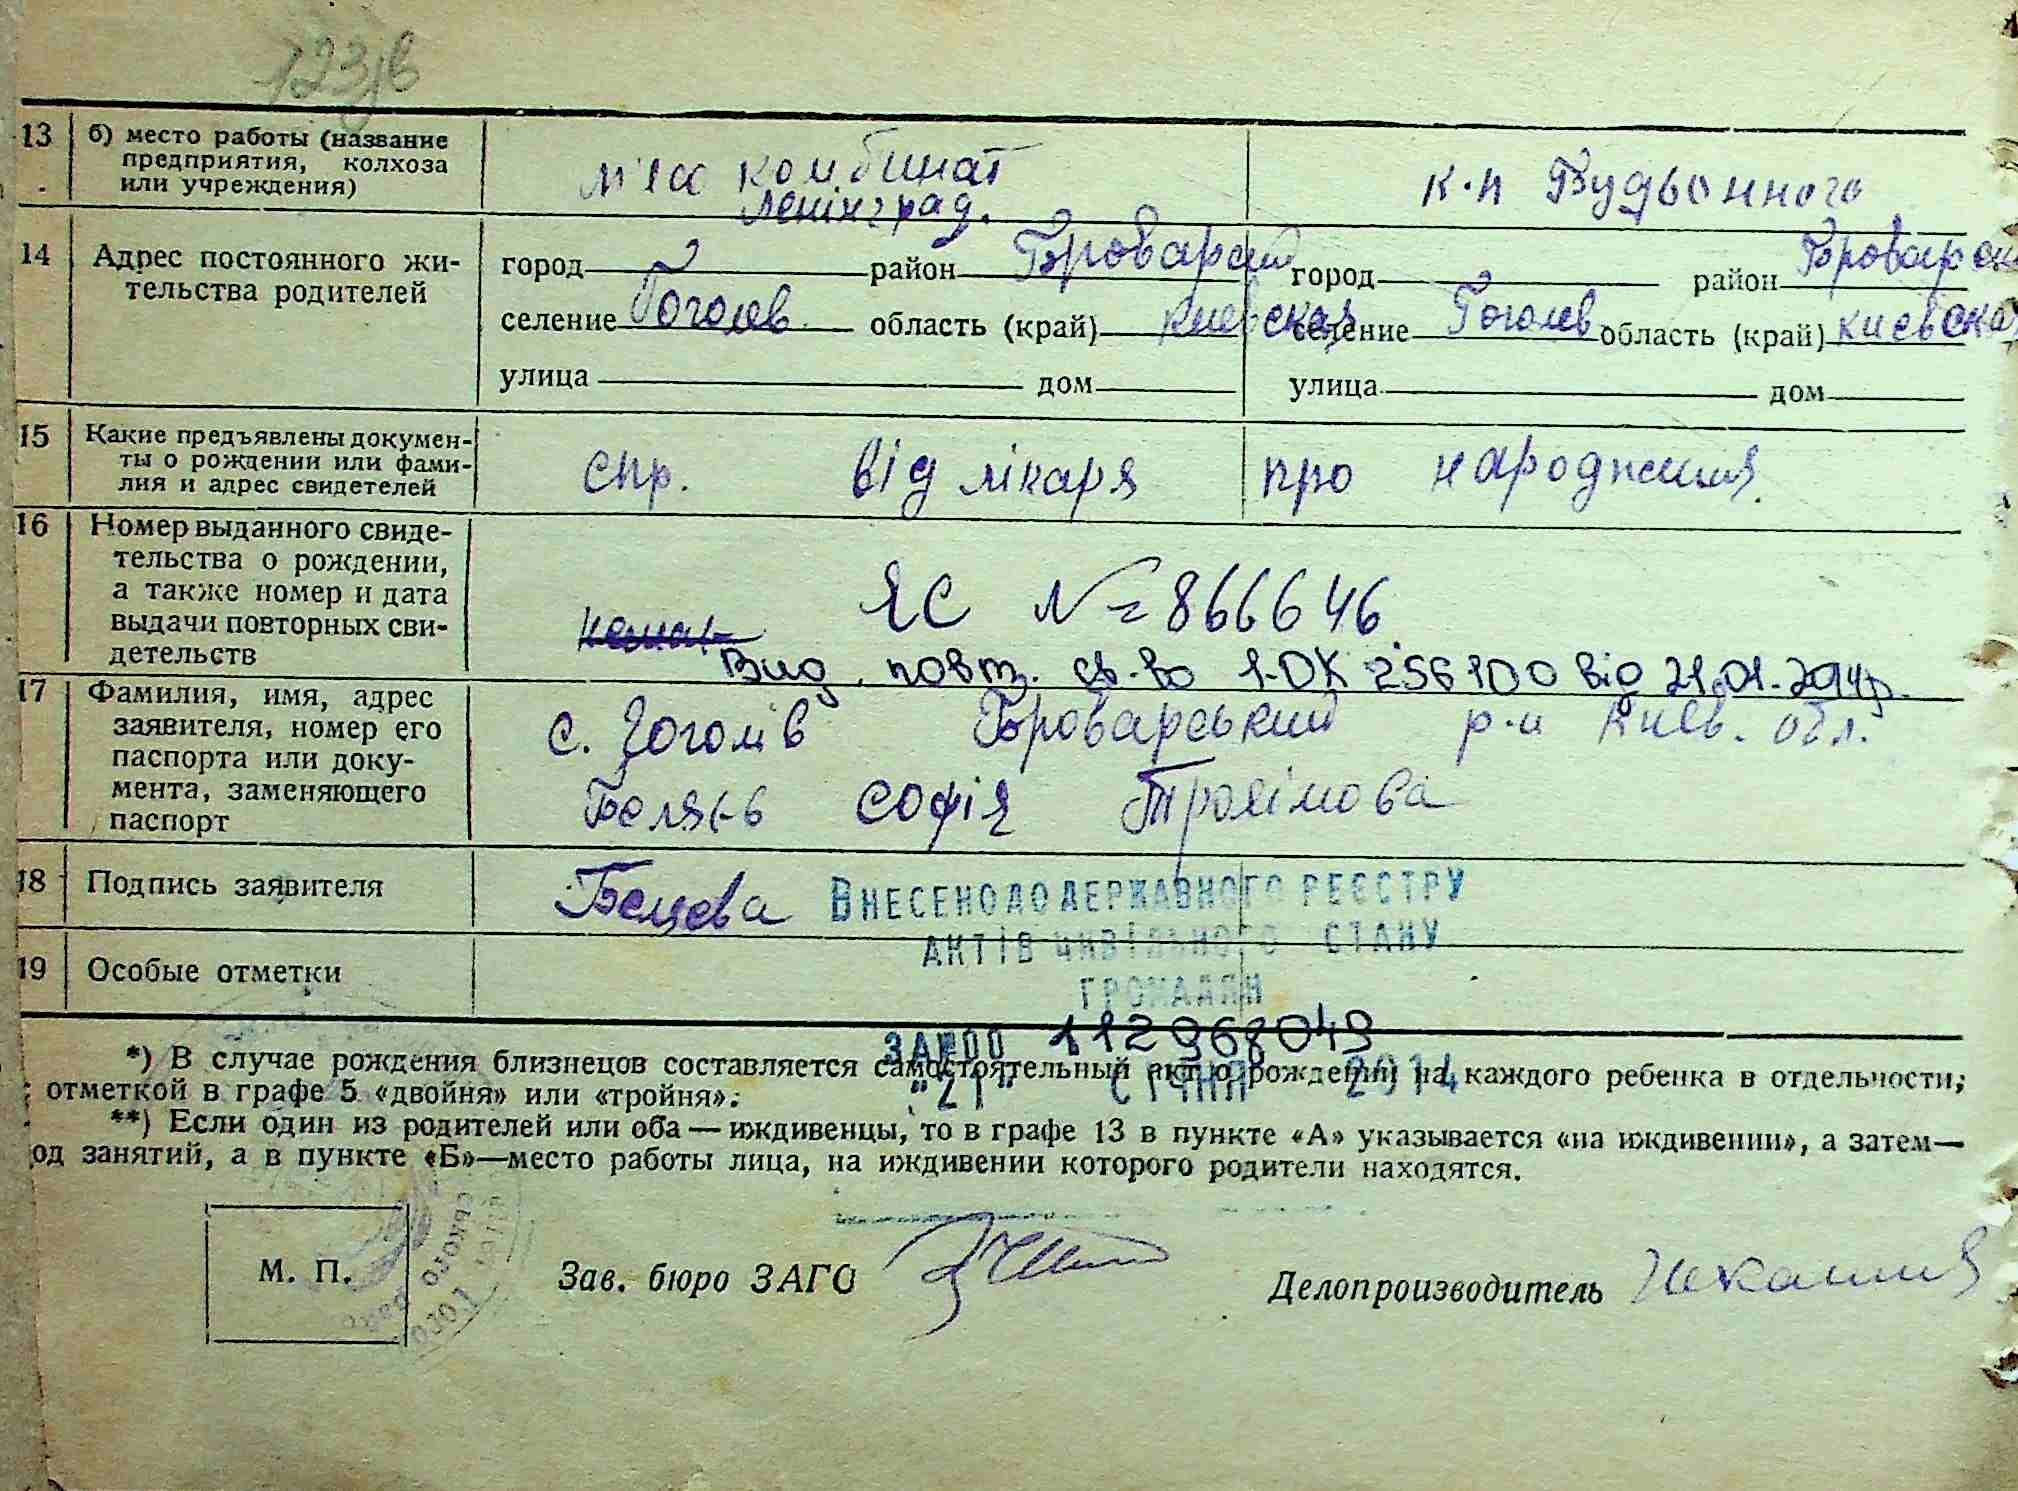 123/в
13 б) место работы (название предприятия, колхоза или учреждения)
м'ясо комбинат
Ленінград.
к-п Будьонного
14 Адрес постоянного жительства родителей
город район Броварский
селение Гоголев область (край) Киевская
улица дом
город район Броварски
селение Гоголев область (край) Киевская
улица дом
15 Какие предъявлены документы о рождении или фамилия и адрес свидетелей
спр. від лікаря про народження.
16 Номер выданного свидетельства о рождении, а также номер и дата выдачи повторных свидетельств
ЯС № 866646
Вид. повт. св-во 1-ОК 256100 від 21.01.2014р.
17 Фамилия, имя, адрес заявителя, номер его паспорта или документа, заменяющего паспорт
с. Гоголів Броварський р-н Київ. обл.
Софія
18 Подпись заявителя
ВНЕСЕНО ДО ДЕРЖАВНОГО РЕЄСТРУ
АКТІВ ЦИВІЛЬНОГО СТАНУ
ГРОМАДЯН
19 Особые отметки
ЗА №00 112968049
"21" СІЧНЯ 2014
*) В случае рождения близнецов составляется самостоятельный акт о рождении на каждого ребенка в отдельности,
с отметкой в графе 5 «двойня» или «тройня».
**) Если один из родителей или оба — иждивенцы, то в графе 13 в пункте «А» указывается «на иждивении», а затем—
од занятий, а в пункте «Б»—место работы лица, на иждивении которого родители находятся.
М. П.
Зав. бюро ЗАГС
Делопроизводитель